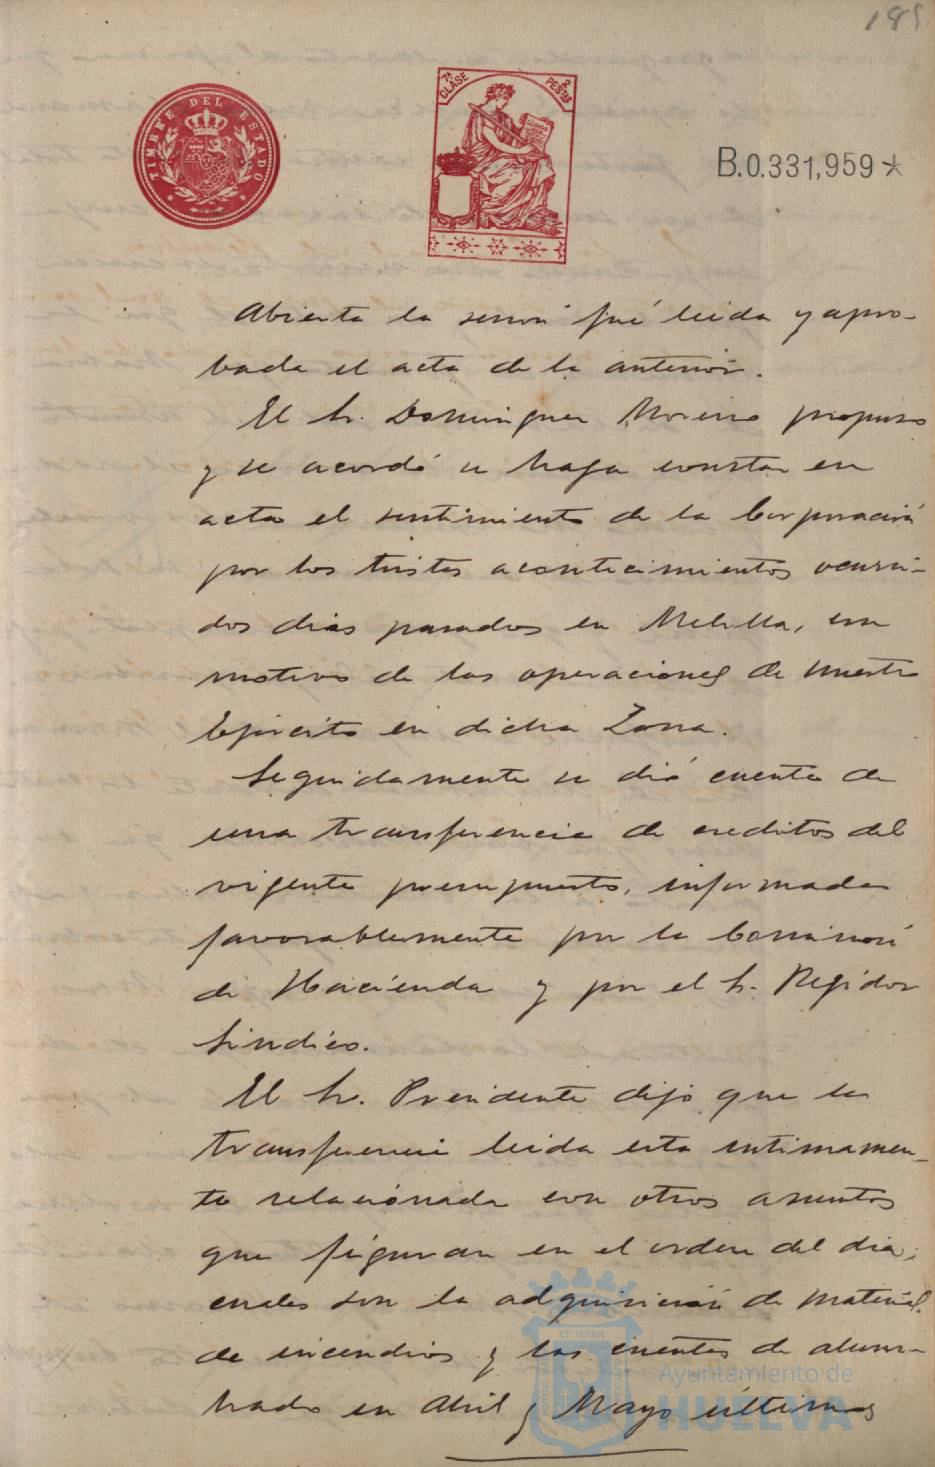 185
TIMBRE DEL ESTADO
7ª CLASE
2 PESTAS
B.0.331,959 *
Abierta la sesion fué leida y apro-
bada el acta de la anterior.
El Sr. Dominguez Moreno propuso
y se acordó se haga constar en
acta el sentimiento de la Corporación
por los tristes acontecimientos ocurri-
dos dias pasados en Melilla, con
motivo de las operaciones de nuestro
Ejército en dicha Zona.
Seguidamente se dió cuenta de
una transferencia de creditos del
vigente presupuesto, informada
favorablemente por la Comisión
de Hacienda y por el Sr. Regidor
Sindico.
El Sr. Presidente dijo que la
transferencia leida esta intimamen-
te relacionada con otros asuntos
que figuran en el orden del dia,
cuales son la adquisición de material
de incendios y las cuentas de alum-
brado en Abril y Mayo últimos
Ayuntamiento de
HUELVA